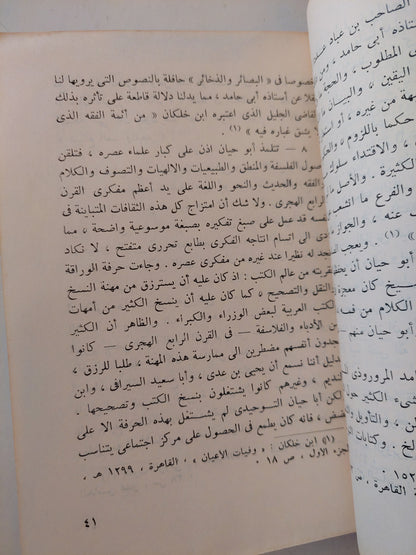 خصوصا في « البصائر والذخائر » حافلة بالنصوص التي يرويها لنا
نقلا عن أستاذه أبي حامد ، مما يدلنا دلالة قاطعة على تأثره بذلك
القاضي الجليل الذى اعتبره ابن خلكان « من أئمة الفقه الذى
لا يشق غباره فيه » (١) .
٨ — تتلمذ أبو حيان اذن على كبار علماء عصره ، فتلقن
أصول الفلسفة والمنطق والطبيعيات والالهيات والتصوف والكلام
والفقه والحديث والنحو واللغة على يد أعظم مفكرى القرن
الرابع الهجرى . ولا شك أن امتزاج كل هذه الثقافات المتباينة في
نفسه قد عمل على صبغ تفكيره بصبغة موسوعية واضحة ، مما
أدى الى اتسام انتاجه الفكرى بطابع تحررى متفتح ، لا نكاد
نجد له نظيرا عند غيره من مفكرى عصره . وجاءت حرفة الوراقة
معرفته من عالم الكتب : اذ كان عليه أن يسترزق من مهنة النسخ
والنقل والتصحيح ، كما كان عليه أن ينسخ الكثير من أمهات
الكتب العربية لبعض الوزراء والكبراء . والظاهر أن الكثير
من الأدباء والفلاسفة — في القرن الرابع الهجرى — كانوا
يجدون أنفسهم مضطرين الى ممارسة هذه المهنة ، طلبا للرزق ،
بدليل أننا نسمع أن يحيى بن عدى ، وأبا سعيد السيرافى ، وابن
النديم ، وغيرهم كانوا يشتغلون بنسخ الكتب وتصحيحها .
ولكن أبا حيان التوحيدى لم يشتغل بهذه الحرفة الا على
مضض ، فانه كان يطمع في الحصول على مركز اجتماعى يتناسب
(١) ابن خلكان : « وفيات الأعيان » ، القاهرة ، ١٢٩٩ هـ ،
الجزء الأول ، ص ١٨ .
٤١
الصاحب بن عباد
أستاذه أبى حامد ، ومن
ى المطلوب ، والحجة
اليقين ، والبيان ما
هة من غيره ، أو استد
حكما باللزوم ، والعر
، والاقتداء سلوك
الكثيرة . والأصل ما
والفرع ما انشعب
عنه ، والجواز
» (١) . ويعجب
أبو حيان أن يحفظ
سيخ كان معجبا
الكلام من فسه
و حيان منهم —
مد المروروذى
شىء الكثير حول
ن ، والتأويل والنص
الخ . وكتابات
١٥٣
القاهرة ،